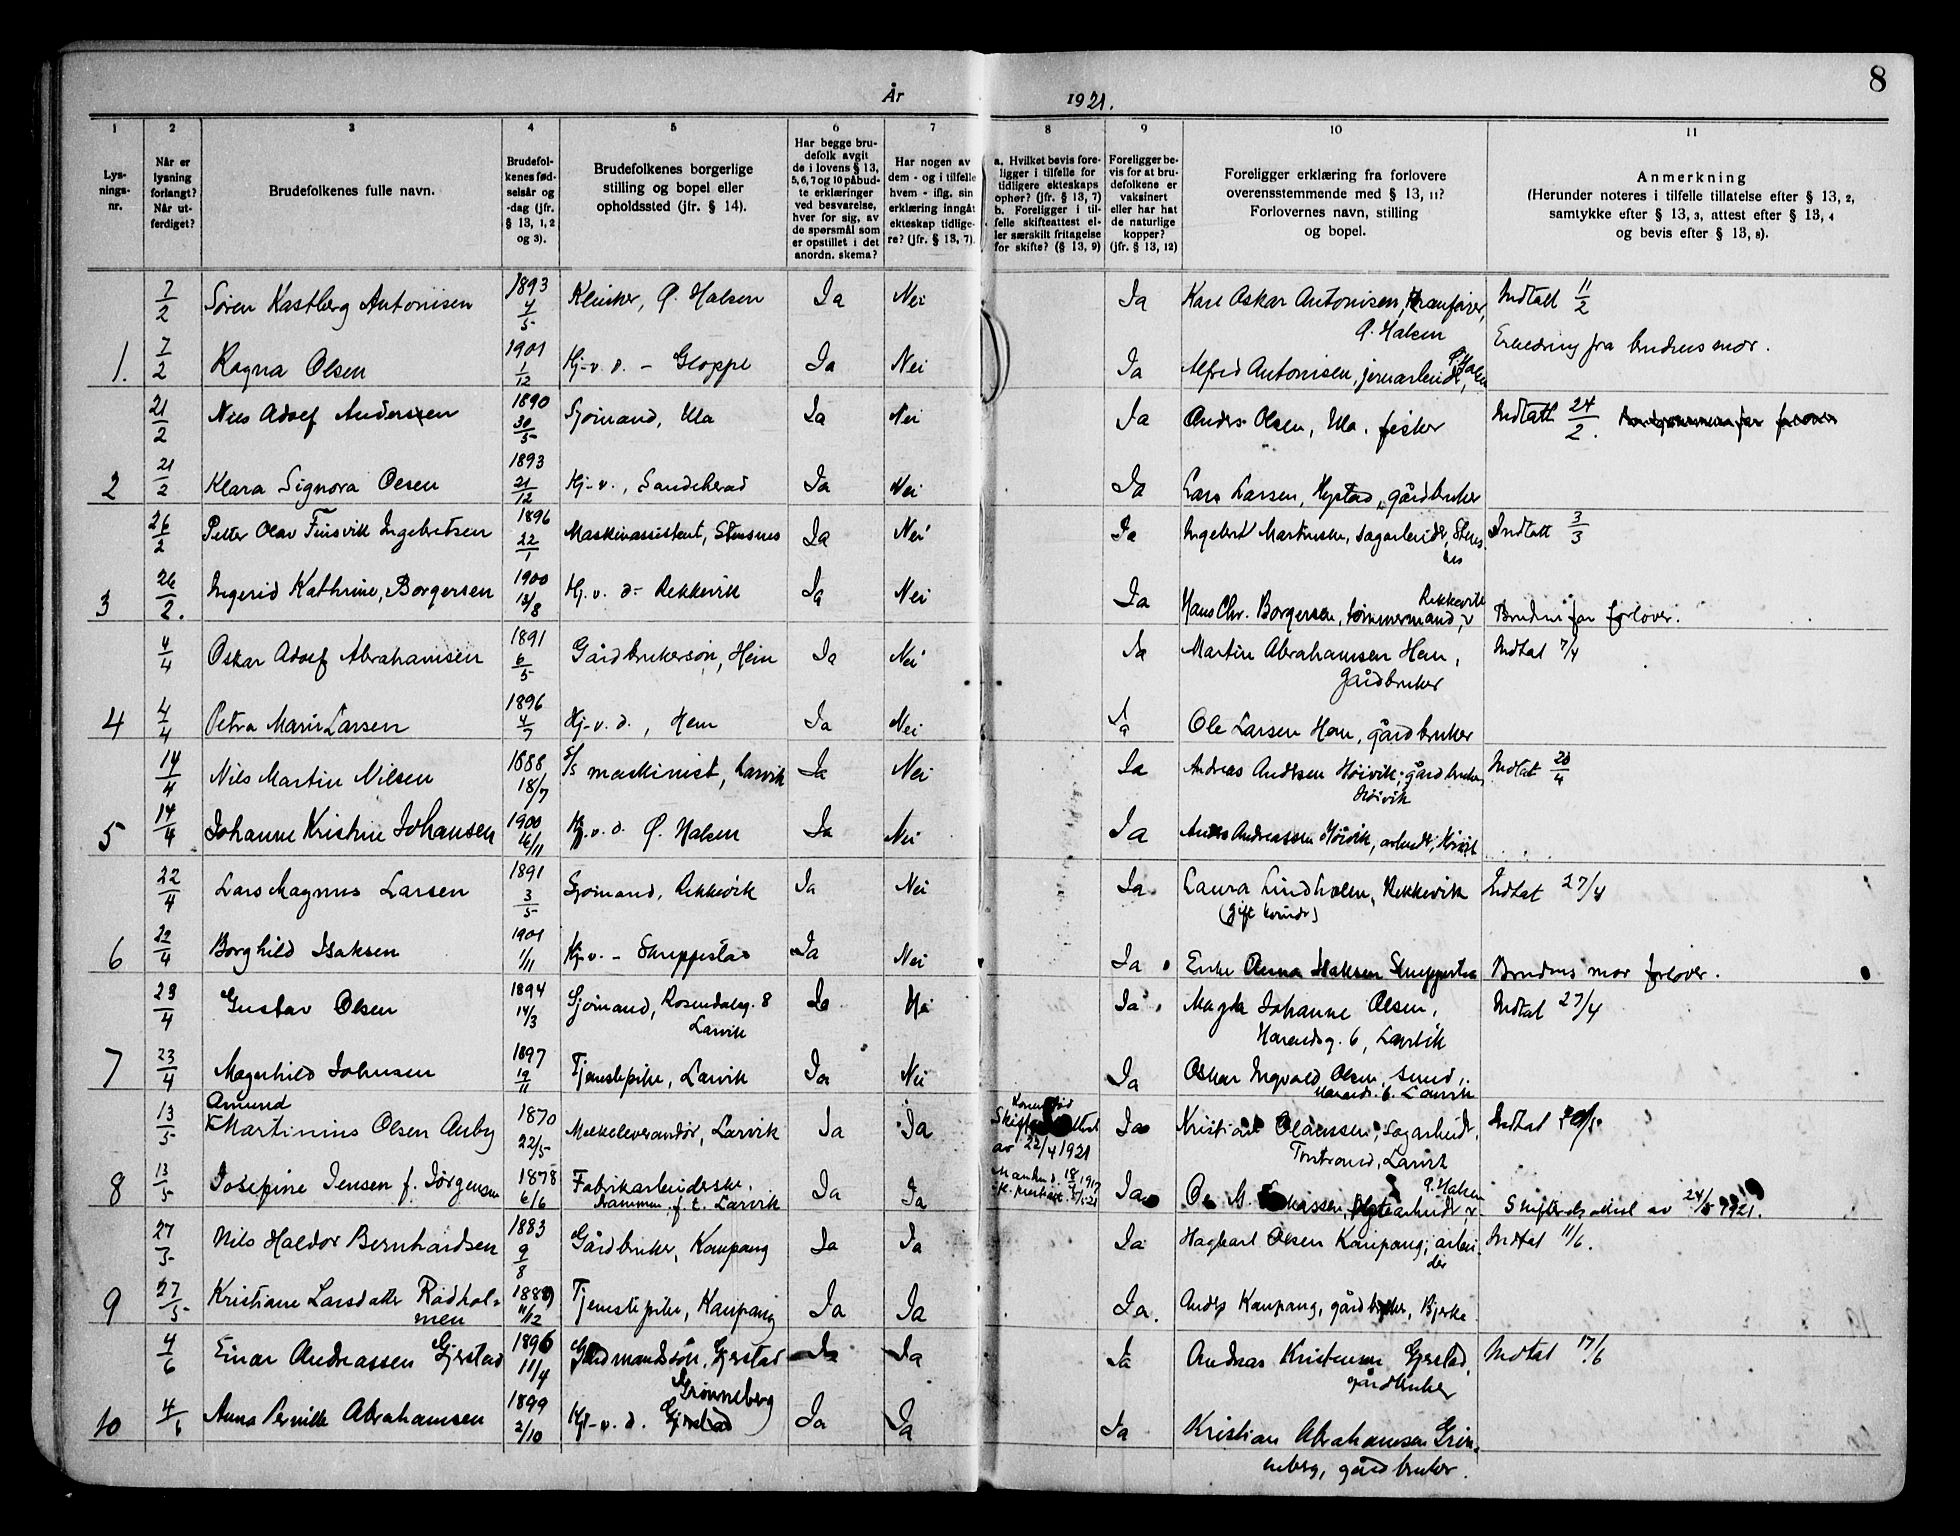 8
År 1921.
1 2 3 4 5 6 7 8 9 10 11
Lys-
nings-
nr.
Når er
lysning
forlangt?
Når ut-
ferdiget?
Brudefolkenes fulle navn.
Brudefol-
kenes fød-
selsår og
-dag (jfr.
§ 13, 1, 2
og 3).
Brudefolkenes borgerlige
stilling og bopel eller
opholdssted (jfr. § 14).
Har begge bru-
defolk avgit
de i lovens § 13,
5, 6, 7 og 10 påbud-
te erklæringer
ved besvarelse,
hver for sig, av
de spørsmål som
er opstillet i det
anordn. skema?
Har nogen av
dem - og i tilfelle
hvem - iflg. sin
erklæring inngåt
ekteskap tidlige-
re? (jfr. § 13, 7).
a. Hvilket bevis fore-
ligger i tilfelle for
tidligere ekteskaps
ophør? (jfr. § 13, 7)
b. Foreligger i til-
felle skifteattest el-
ler særskilt fritagelse
for skifte? (§ 13, 9)
Foreligger be-
vis for at bru-
defolkene er
vaksinert
eller har hat
de naturlige
kopper?
(jfr. § 13, 12)
Foreligger erklæring fra forlovere
overensstemmende med § 13, 11?
Forlovernes navn, stilling
og bopel.
Anmerkning
(Herunder noteres i tilfelle tillatelse efter § 13, 2,
samtykke efter § 13, 3, attest efter § 13, 4
og bevis efter § 13, 8).
7/2 Søren Kastberg Antonisen 1893 4/5 Klinker, Ø. Halsen Ja Nei Ja Karl Oskar Antonisen, kranfører, Indtatt 11/2
Ø. Halsen
1. 7/2 Ragna Olsen 1901 1/12 Hj-v. d. - Gloppe Ja Nei Ja Alfred Antonisen, jernarbeider, Ø. Halsen Erklæring fra brudens mor.
21/2 Nils Adolf Anderssen 1890 30/5 Sjømand, Ula Ja Nei Ja Anders Olsen, Ula. fisker Indtatt 24/2.
2 21/2 Klara Signora Olsen 1893 21/12 Hj-v., Sandeherad Ja Nei Ja Lars Larsen, Hystad, gårdbruker
26/2 Petter Olav Finsvik Ingebretsen 1896 22/1 Maskinassistent, Stensnes Ja Nei Ja Ingebret Martinsen, sagarbeider, Stens- Indtatt 3/3
nes
3 26/2. Ingerid Kathrine Borgersen 1900 13/8 Hj. v. d - Rekkevik Ja Nei Ja Hans Chr. Borgersen, tømmermand, Rekkevik Brudens far forlover.
4/4 Oskar Adolf Abrahamsen 1891 6/5 Gårdbrukersøn, Hem Ja Nei Ja Martin Abrahamsen Hem, Indtat 7/4
Gårdbruker
4 4/4 Petra Marie Larsen 1896 4/7 Hj-v. d., Hem Ja Nei Ja Ole Larsen Hem, gårdbruker
14/4 Nils Martin Nilsen 1888 18/7 S/S maskinist, Larvik Ja Nei Ja Andreas Andersen Høivik, gårdbruker, Indtat 20/4
Høivik
5 14/4 Johanne Kristine Johansen 1900 16/11 Hj. v. d. Ø. Halsen Ja Nei Ja Anders Andreassen Høivik, arbeider, Høivik
22/4 Lars Magnus Larsen 1891 3/5 Sjømand, Rekkevik Ja Nei Ja Laura Lindholm, Rekkevik Indtat 27/4
(gift kvinde)
6 22/4 Borghild Isaksen 1901 1/11 Hj-v. - Skreppestad Ja Nei Ja Enke Anna Isaksen Skreppestad Brudens mor forlover.
23/4 Gustav Olsen 1894 14/3 Sjømand, Rosendalsg. 8 Ja Nei Ja Johanne Olsen, Indtat 27/4
Larvik 6, Larvik
7 23/4 Magnhild Johnsen 1897 19/11 Tjenestepike, Larvik Ja Nei Ja Oskar Ingvald Olsen, smed,
6. Larvik
Amund
13/5 Martinius Olsen Auby 1870 22/5 Melkeleverandør, Larvik Ja Ja av 22/4 1921 Ja Kristian Olaussen, Sagarbeider, Indtat
Torstrand, Larvik
8 13/5 Josefine Jensen f. Jørgensen 1878 6/6 Fabrikarbeiderske, Ja Ja 1917 Ja Ø. Halsen Skifteretsattest av 24/5 1921.
Drammen, f. t. Larvik
27/5 Nils Haldor Bernhardsen 1883 9/8 Gårdbruker, Kaupang Ja Ja Ja Hagbart Olsen Kaupang, arbei- Indtat 11/6.
der
9 27/5 Kristiane Larsdatter Rødhol- 1889 11/12 Tjenestepike, Kaupang Ja Ja Ja Anders Kaupang, gårdbruker, Bjerke
men
4/6 Einar Andreassen Gjerstad 1896 11/4 Gårdmandssøn, Gjerstad Ja Ja Ja Andreas Kristensen Gjerstad, Indtat 17/6
gårdbruker
Grønneberg
10 4/6 Anna Pernille Abrahamsen 1899 2/10 Hj-v. d. Gjerstad Ja Ja Ja Kristian Abrahamsen Grøn-
neberg, gårdbruker.